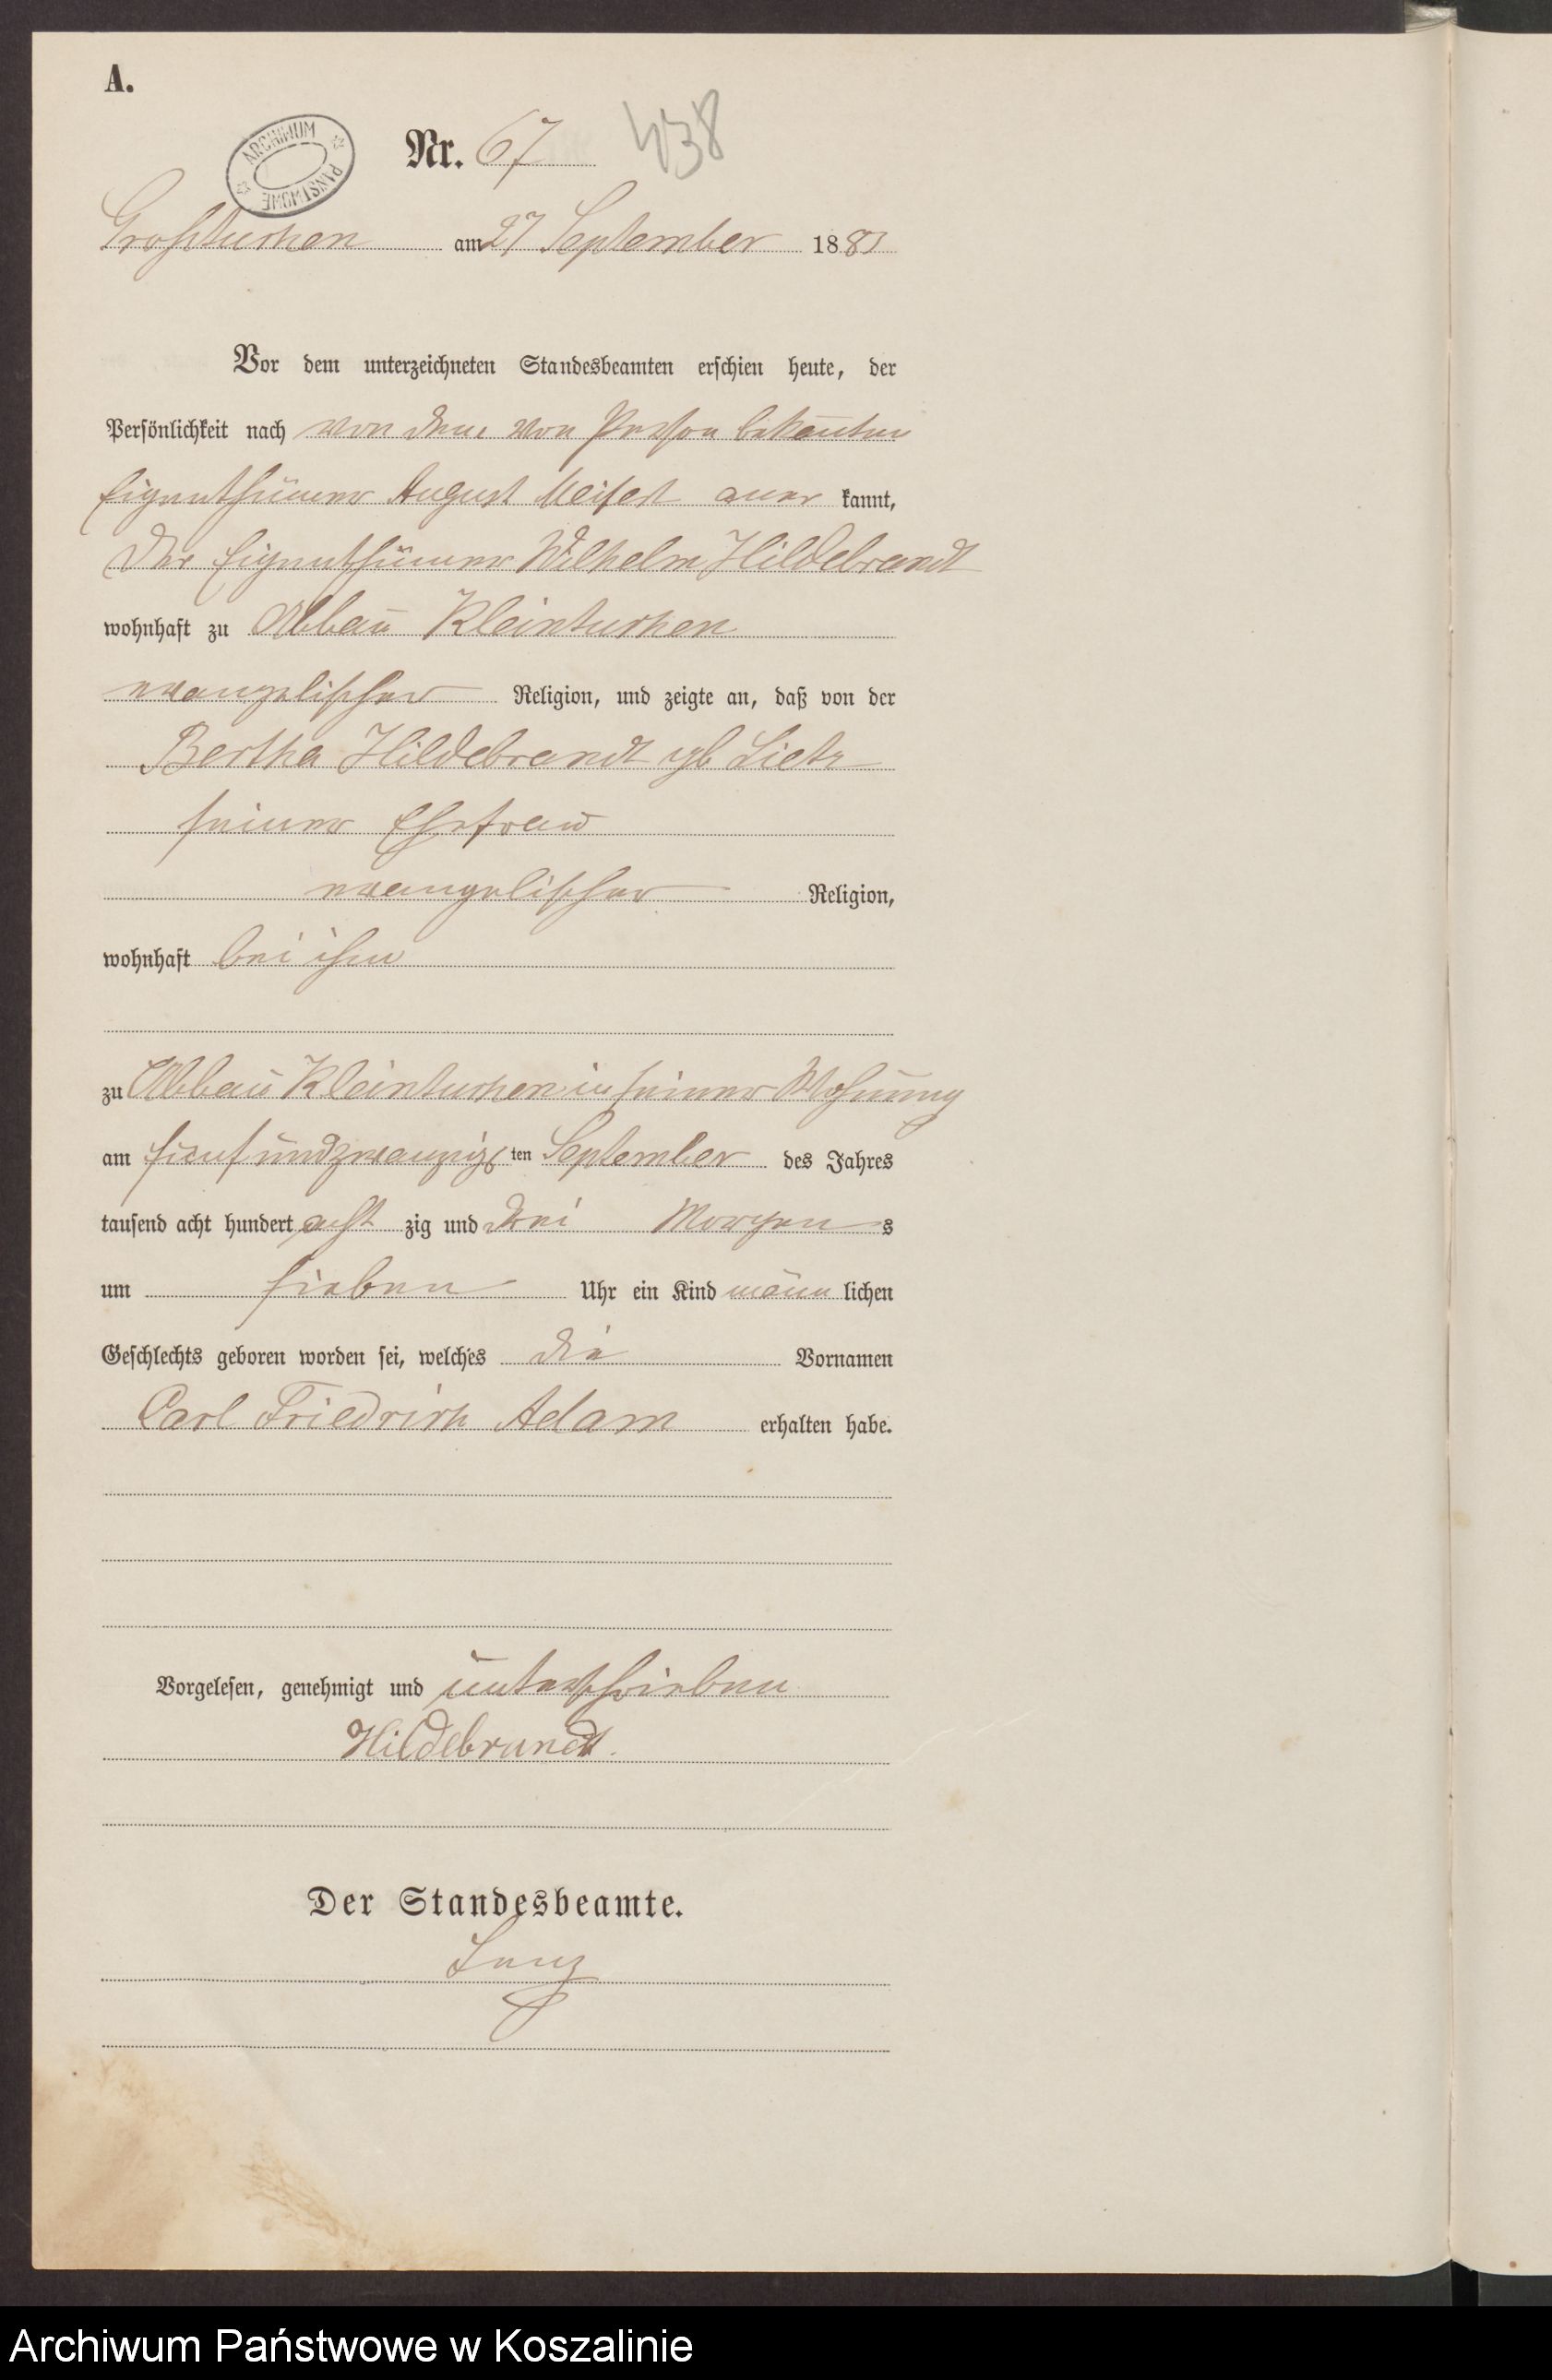 A.
ARCHIWUM PAŃSTWOWE
Nr. 67 438
Großtuchen am 27 September 1883
Vor dem unterzeichneten Standesbeamten erschien heute, der
Persönlichkeit nach von dem von Person bekannten
Eigenthümer August Meifert aner kannt,
der Eigenthümer Wilhelm Hildebrandt
wohnhaft zu Abbau Kleintuchen
evangelischer Religion, und zeigte an, daß von der
Bertha Hildebrandt geb Lietz
seiner Ehefrau
evangelischer Religion,
wohnhaft bei ihm
zu Abbau Kleintuchen in seiner Wohnung
am fünfundzwanzigsten September des Jahres
tausend acht hundert acht zig und drei Morgens
um sieben Uhr ein Kind männlichen
Geschlechts geboren worden sei, welches die Vornamen
Carl Friedrich Adam erhalten habe.
Vorgelesen, genehmigt und unterschrieben
Hildebrandt.
Der Standesbeamte.
Archiwum Państwowe w Koszalinie